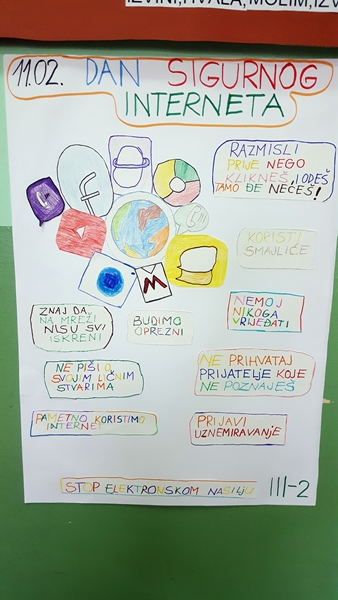 IZVINI, HVALA, MOLIM, IZV
11.02. DAN SIGURNOG
INTERNETA
RAZMISLI
PRIJE NEGO
KLIKNEŠ, I ODEŠ
TAMO ĐE NEĆEŠ!
KORISTI
SMAJLIĆE
ZNAJ DA
NA MREŽI
NISU SVI
ISKRENI
BUDIMO
OPREZNI
NEMOJ
NIKOGA
VRIJEĐATI
NE PIŠI O
SVOJIM LIČNIM
STVARIMA
NE PRIHVATAJ
PRIJATELJE KOJE
NE POZNAJEŠ
PAMETNO KORISTIMO
INTERNET
PRIJAVI
UZNEMIRAVANJE
STOP ELEKTRONSKOM NASILJU
III-2